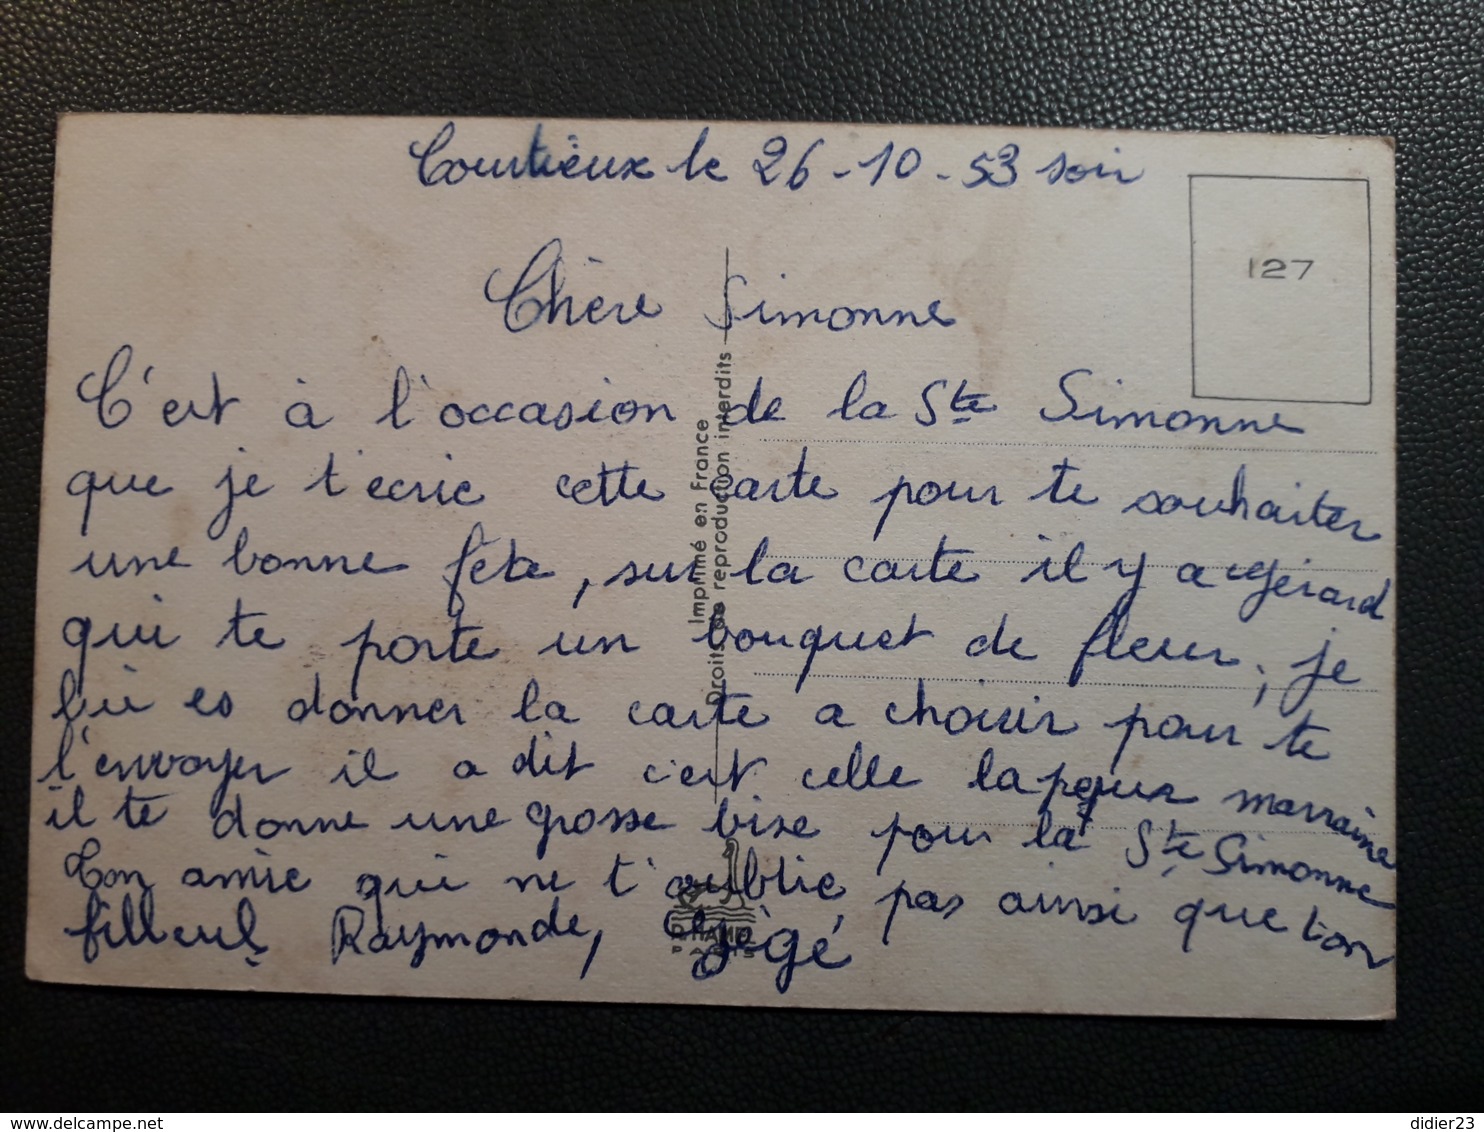 Courtieux le 26-10-53 soir
127
Chère Simonne
C'est à l'occasion de la Ste Simonne
que je t'écrie cette carte pour te souhaiter
une bonne fête, sur la carte il y a Gérard
qui te porte un bouquet de fleur, je
lui es donner la carte a choisir pour te
l'envoyer il a dit c'est celle la pour marraine
il te donne une grosse bise pour la Ste Simonne
Ton amie qui ne t'oublie pas ainsi que ton
filleul Raymonde, Gégé
Imprimé en France
Droits de reproduction interdits
PARIS
didier23